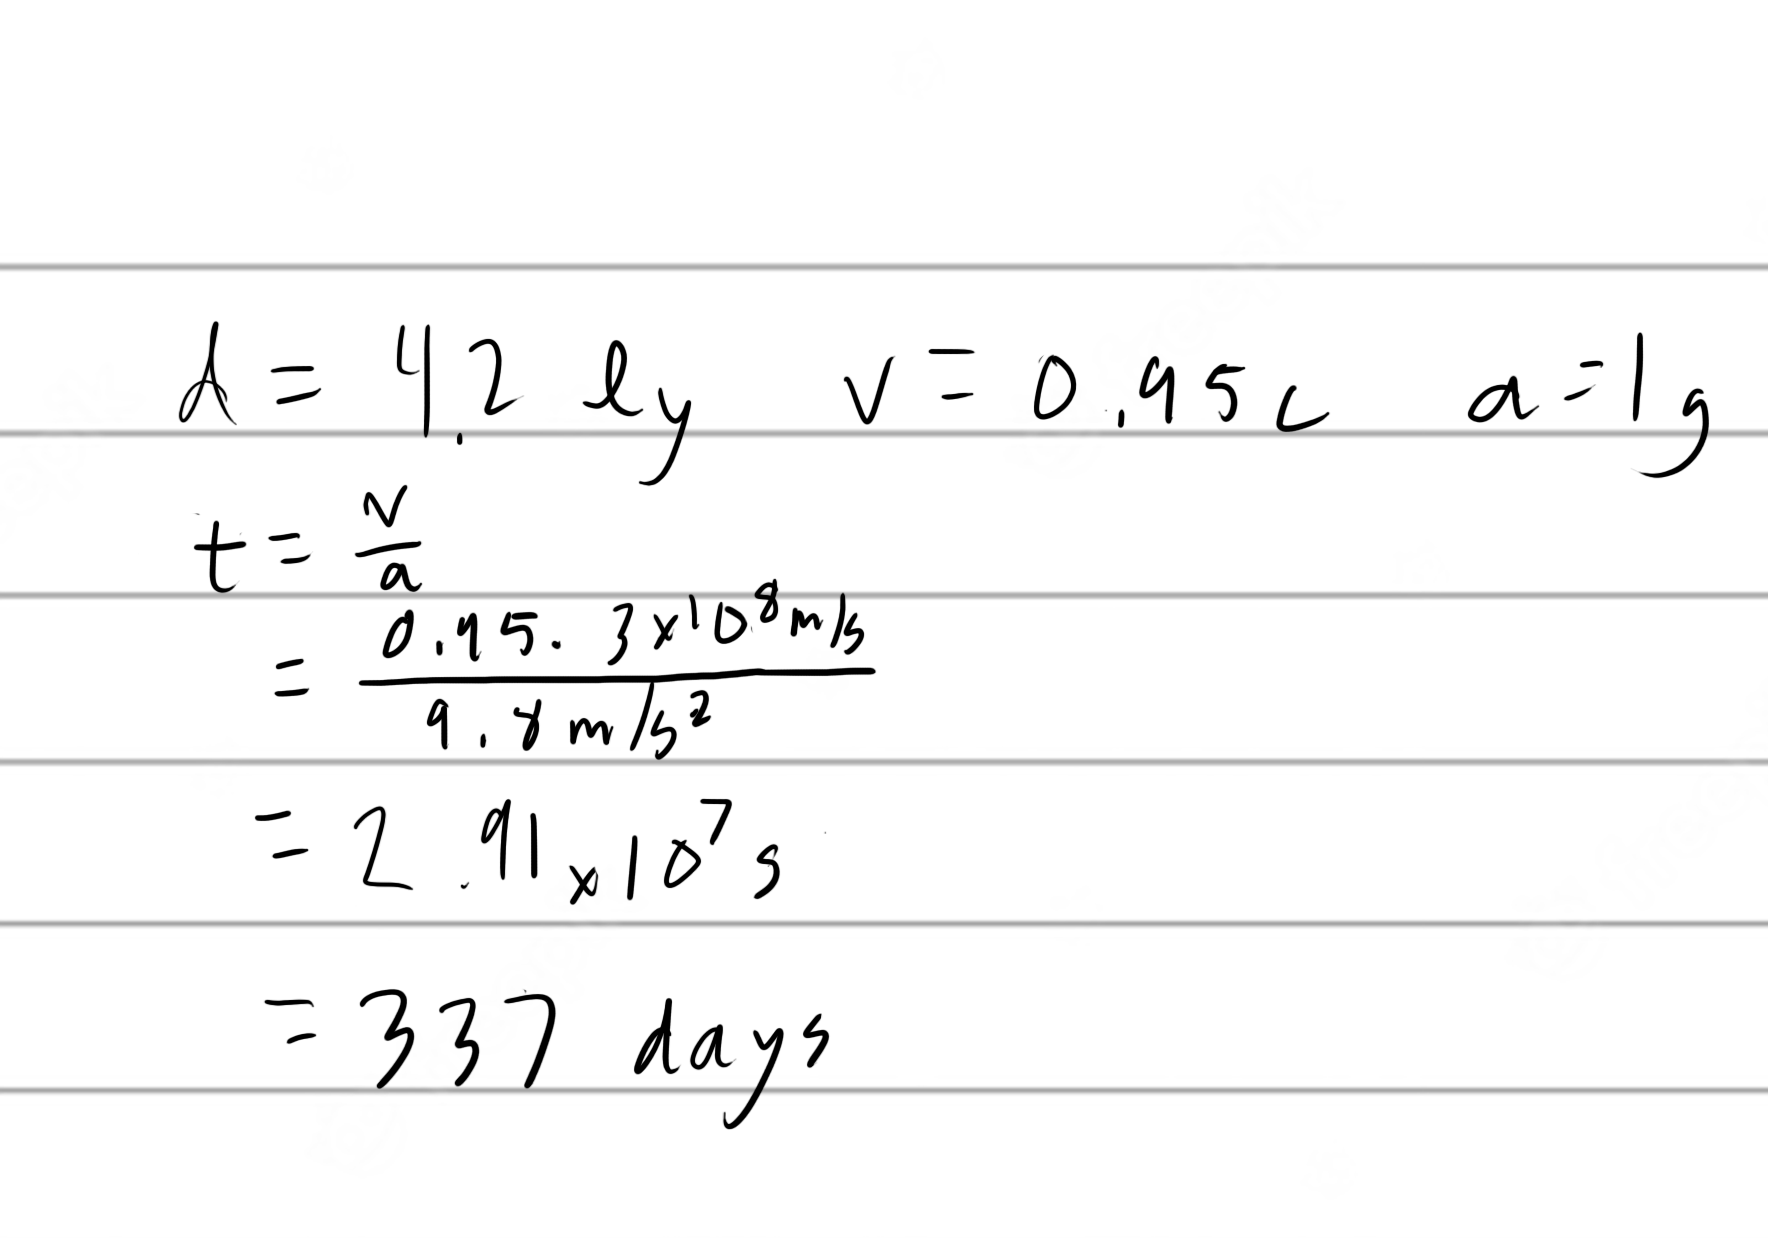 d = 4.2 ly v = 0.95c a = 1g
t = v/a
= 0.95 · 3x10⁸ m/s / 9.8 m/s²
= 2.91x10⁷ s
= 337 days